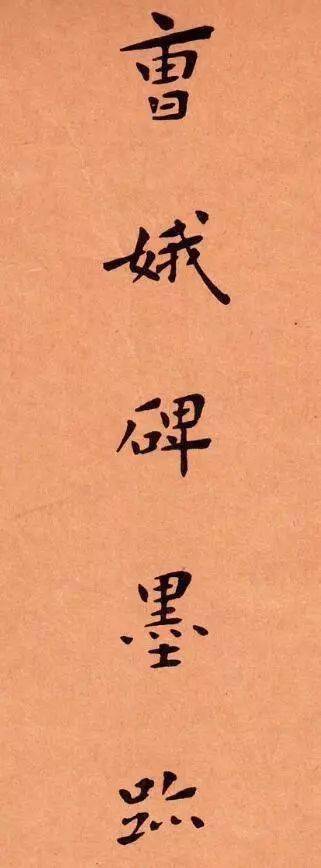 曹娥碑墨跡